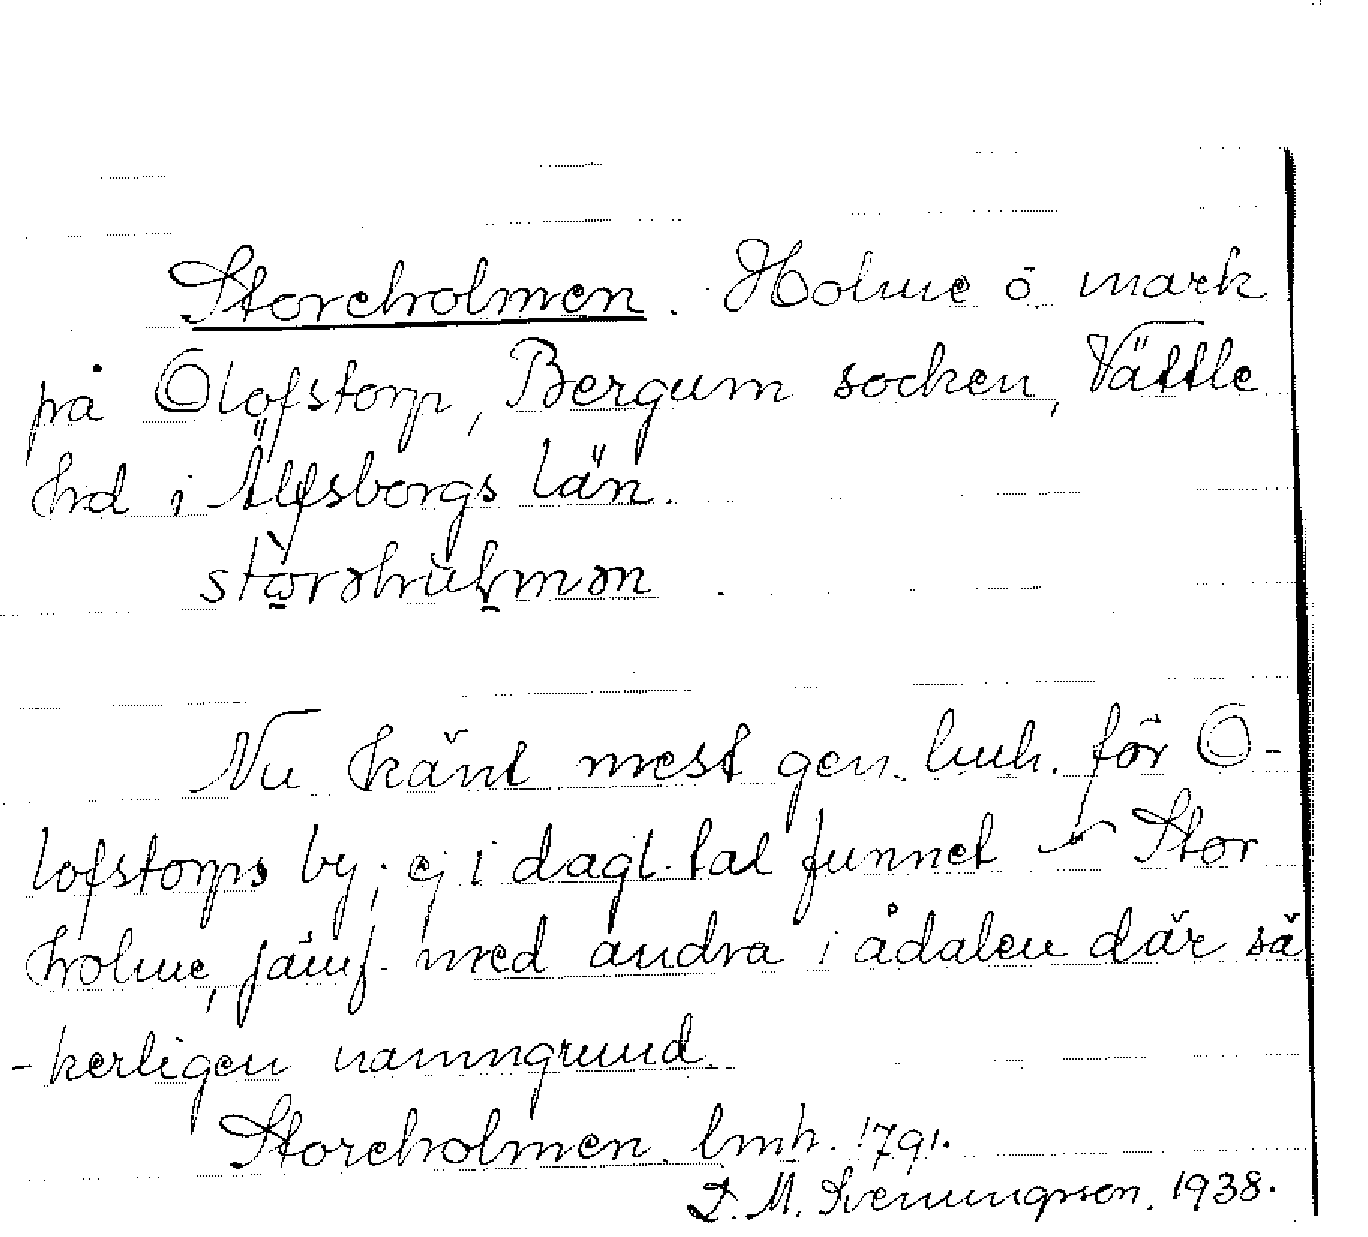 Storeholmen. Holme o mark
på Olofstorp, Bergum socken, Vättle
hrd i Älfsborgs län.

Nu känt mest gen. lmh. för O-
lofstorps by; ej i dagl. tal funnet Stor
holme, jämf. med andra i ådalen där sä
-kerligen namngrund.
Storeholmen. lmh. 1791.
D. M. Svenungsson. 1938.